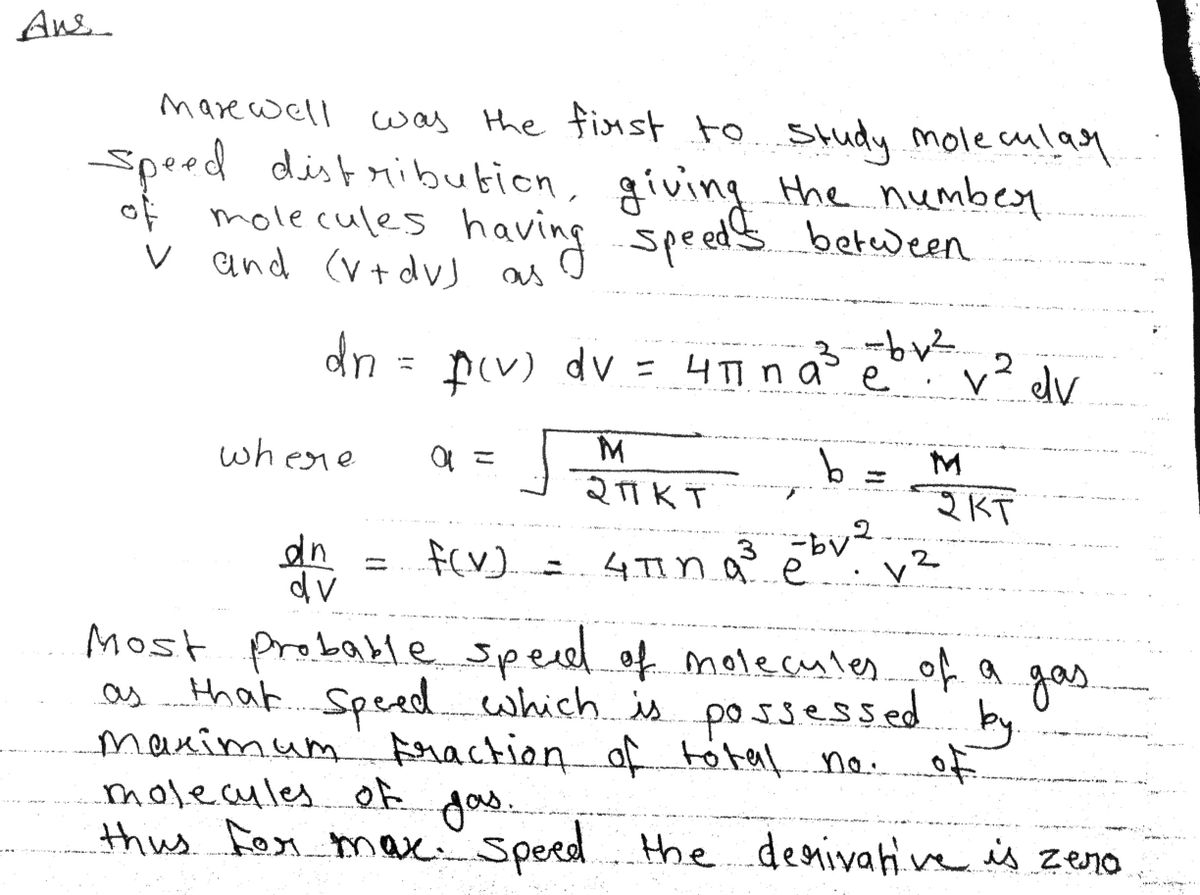 Ans
Maxewell was the first to study molecular
speed distribution, giving the number
of molecules having speeds between
v and (v+dv) as
dn = f(v) dv = 4π n a³ e^{-bv²} . v² dv
where a = √(M / 2πKT) , b = M / 2KT
dn/dv = f(v) = 4πn a³ e^{-bv²} . v²
Most probable speed of molecules of a gas
as that speed which is possessed by
maximum fraction of total no. of
molecules of gas.
thus for max. speed the derivative is zero